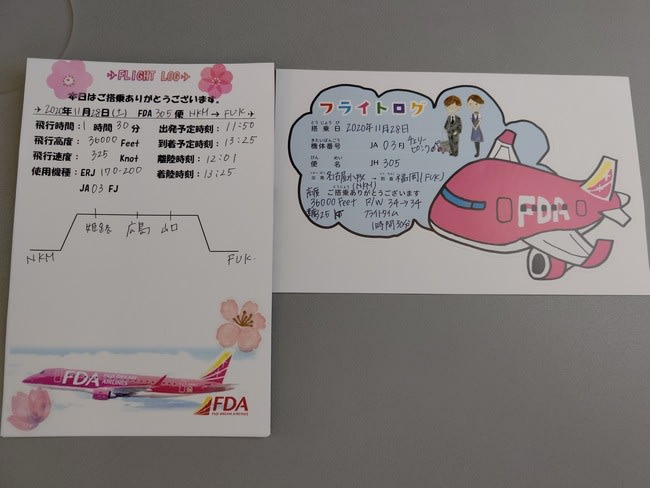 FLIGHT LOG
本日はご搭乗ありがとうございます。
2020年11月28日(土) FDA 305 便 NKM → FUK
飛行時間:1 時間 30分 出発予定時刻:11:50
飛行高度:36000 Feet 到着予定時刻:13:25
飛行速度:325 Knot 離陸時刻:12:01
使用機種:ERJ 170-200 着陸時刻:13:25
JA 03 FJ
姫路 広島 山口
NKM FUK.
FDA FUJI DREAM AIRLINES
FDA
FUJI DREAM AIRLINES
フライトログ
とうじょうび
搭乗日 2020年11月28日
きたいばんごう
機体番号 JA 03 FJ チェリーピンク
びんめい
便名 JH 305
出発 名古屋小牧(NKM) → 到着 福岡(FUK)
とうじょう
ご搭乗ありがとうございます
高度
36000 Feet R/W 34→34
325 kt フライトタイム
1時間30分
FDA